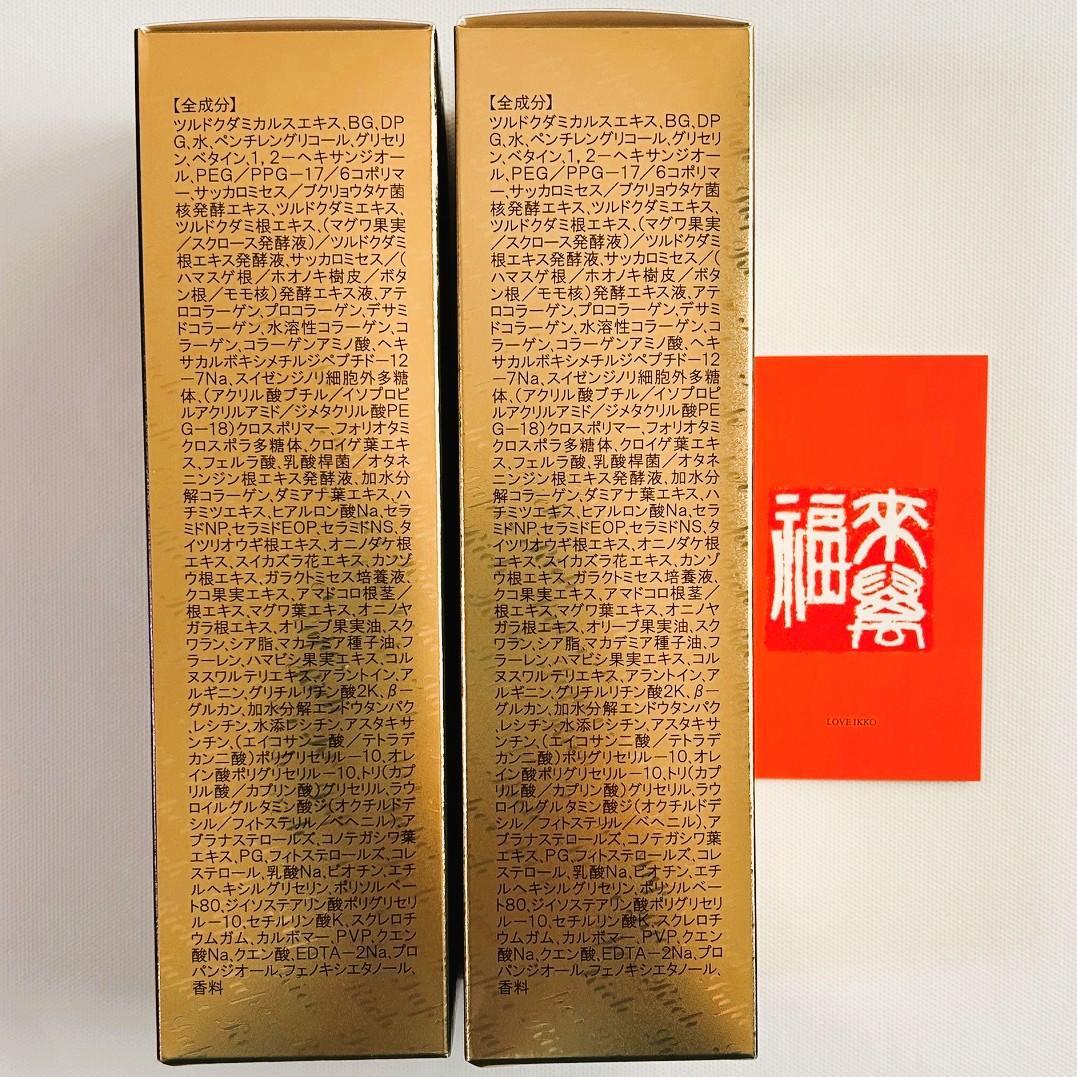 【全成分】
ツルドクダミカルスエキス、BG、DP
G、水、ペンチレングリコール、グリセリ
ン、ベタイン、1,2－ヘキサンジオー
ル、PEG／PPG－17／6コポリマ
ー、サッカロミセス／ブクリョウタケ菌
核発酵エキス、ツルドクダミエキス、
ツルドクダミ根エキス、(マグワ果実
／スクロース発酵液)／ツルドクダミ
根エキス発酵液、サッカロミセス／(
ハマスゲ根／ホオノキ樹皮／ボタ
ン根／モモ核)発酵エキス液、アテ
ロコラーゲン、プロコラーゲン、デサミ
ドコラーゲン、水溶性コラーゲン、コ
ラーゲン、コラーゲンアミノ酸、ヘキ
サカルボキシメチルジペプチド－12
－7Na、スイゼンジノリ細胞外多糖
体、(アクリル酸ブチル／イソプロピ
ルアクリルアミド／ジメタクリル酸PE
G－18)クロスポリマー、フォリオタミ
クロスポラ多糖体、クロイゲ葉エキ
ス、フェルラ酸、乳酸桿菌／オタネ
ニンジン根エキス発酵液、加水分
解コラーゲン、ダミアナ葉エキス、ハ
チミツエキス、ヒアルロン酸Na、セラ
ミドNP、セラミドEOP、セラミドNS、タ
イツリオウギ根エキス、オニノダケ根
エキス、スイカズラ花エキス、カンゾ
ウ根エキス、ガラクトミセス培養液、
クコ果実エキス、アマドコロ根茎／
根エキス、マグワ葉エキス、オニノヤ
ガラ根エキス、オリーブ果実油、スク
ワラン、シア脂、マカデミア種子油、フ
ラーレン、ハマビシ果実エキス、コル
ヌスワルテリエキス、アラントイン、ア
ルギニン、グリチルリチン酸2K、β－
グルカン、加水分解エンドウタンパク
、レシチン、水添レシチン、アスタキサ
ンチン、(エイコサン二酸／テトラデ
カン二酸)ポリグリセリル－10、オレ
イン酸ポリグリセリル－10、トリ(カプ
リル酸／カプリン酸)グリセリル、ラウ
ロイルグルタミン酸ジ(オクチルドデ
シル／フィトステリル／ベヘニル)、ア
ブラナステロールズ、コノテガシワ葉
エキス、PG、フィトステロールズ、コレ
ステロール、乳酸Na、ビオチン、エチ
ルヘキシルグリセリン、ポリソルベー
ト80、ジイソステアリン酸ポリグリセリ
ル－10、セチルリン酸K、スクレロチ
ウムガム、カルボマー、PVP、クエン
酸Na、クエン酸、EDTA－2Na、プロ
パンジオール、フェノキシエタノール、
香料
【全成分】
ツルドクダミカルスエキス、BG、DP
G、水、ペンチレングリコール、グリセリ
ン、ベタイン、1,2－ヘキサンジオー
ル、PEG／PPG－17／6コポリマ
ー、サッカロミセス／ブクリョウタケ菌
核発酵エキス、ツルドクダミエキス、
ツルドクダミ根エキス、(マグワ果実
／スクロース発酵液)／ツルドクダミ
根エキス発酵液、サッカロミセス／(
ハマスゲ根／ホオノキ樹皮／ボタ
ン根／モモ核)発酵エキス液、アテ
ロコラーゲン、プロコラーゲン、デサミ
ドコラーゲン、水溶性コラーゲン、コ
ラーゲン、コラーゲンアミノ酸、ヘキ
サカルボキシメチルジペプチド－12
－7Na、スイゼンジノリ細胞外多糖
体、(アクリル酸ブチル／イソプロピ
ルアクリルアミド／ジメタクリル酸PE
G－18)クロスポリマー、フォリオタミ
クロスポラ多糖体、クロイゲ葉エキ
ス、フェルラ酸、乳酸桿菌／オタネ
ニンジン根エキス発酵液、加水分
解コラーゲン、ダミアナ葉エキス、ハ
チミツエキス、ヒアルロン酸Na、セラ
ミドNP、セラミドEOP、セラミドNS、タ
イツリオウギ根エキス、オニノダケ根
エキス、スイカズラ花エキス、カンゾ
ウ根エキス、ガラクトミセス培養液、
クコ果実エキス、アマドコロ根茎／
根エキス、マグワ葉エキス、オニノヤ
ガラ根エキス、オリーブ果実油、スク
ワラン、シア脂、マカデミア種子油、フ
ラーレン、ハマビシ果実エキス、コル
ヌスワルテリエキス、アラントイン、ア
ルギニン、グリチルリチン酸2K、β－
グルカン、加水分解エンドウタンパク
、レシチン、水添レシチン、アスタキサ
ンチン、(エイコサン二酸／テトラデ
カン二酸)ポリグリセリル－10、オレ
イン酸ポリグリセリル－10、トリ(カプ
リル酸／カプリン酸)グリセリル、ラウ
ロイルグルタミン酸ジ(オクチルドデ
シル／フィトステリル／ベヘニル)、ア
ブラナステロールズ、コノテガシワ葉
エキス、PG、フィトステロールズ、コレ
ステロール、乳酸Na、ビオチン、エチ
ルヘキシルグリセリン、ポリソルベー
ト80、ジイソステアリン酸ポリグリセリ
ル－10、セチルリン酸K、スクレロチ
ウムガム、カルボマー、PVP、クエン
酸Na、クエン酸、EDTA－2Na、プロ
パンジオール、フェノキシエタノール、
香料
來萬
福
LOVE IKKO